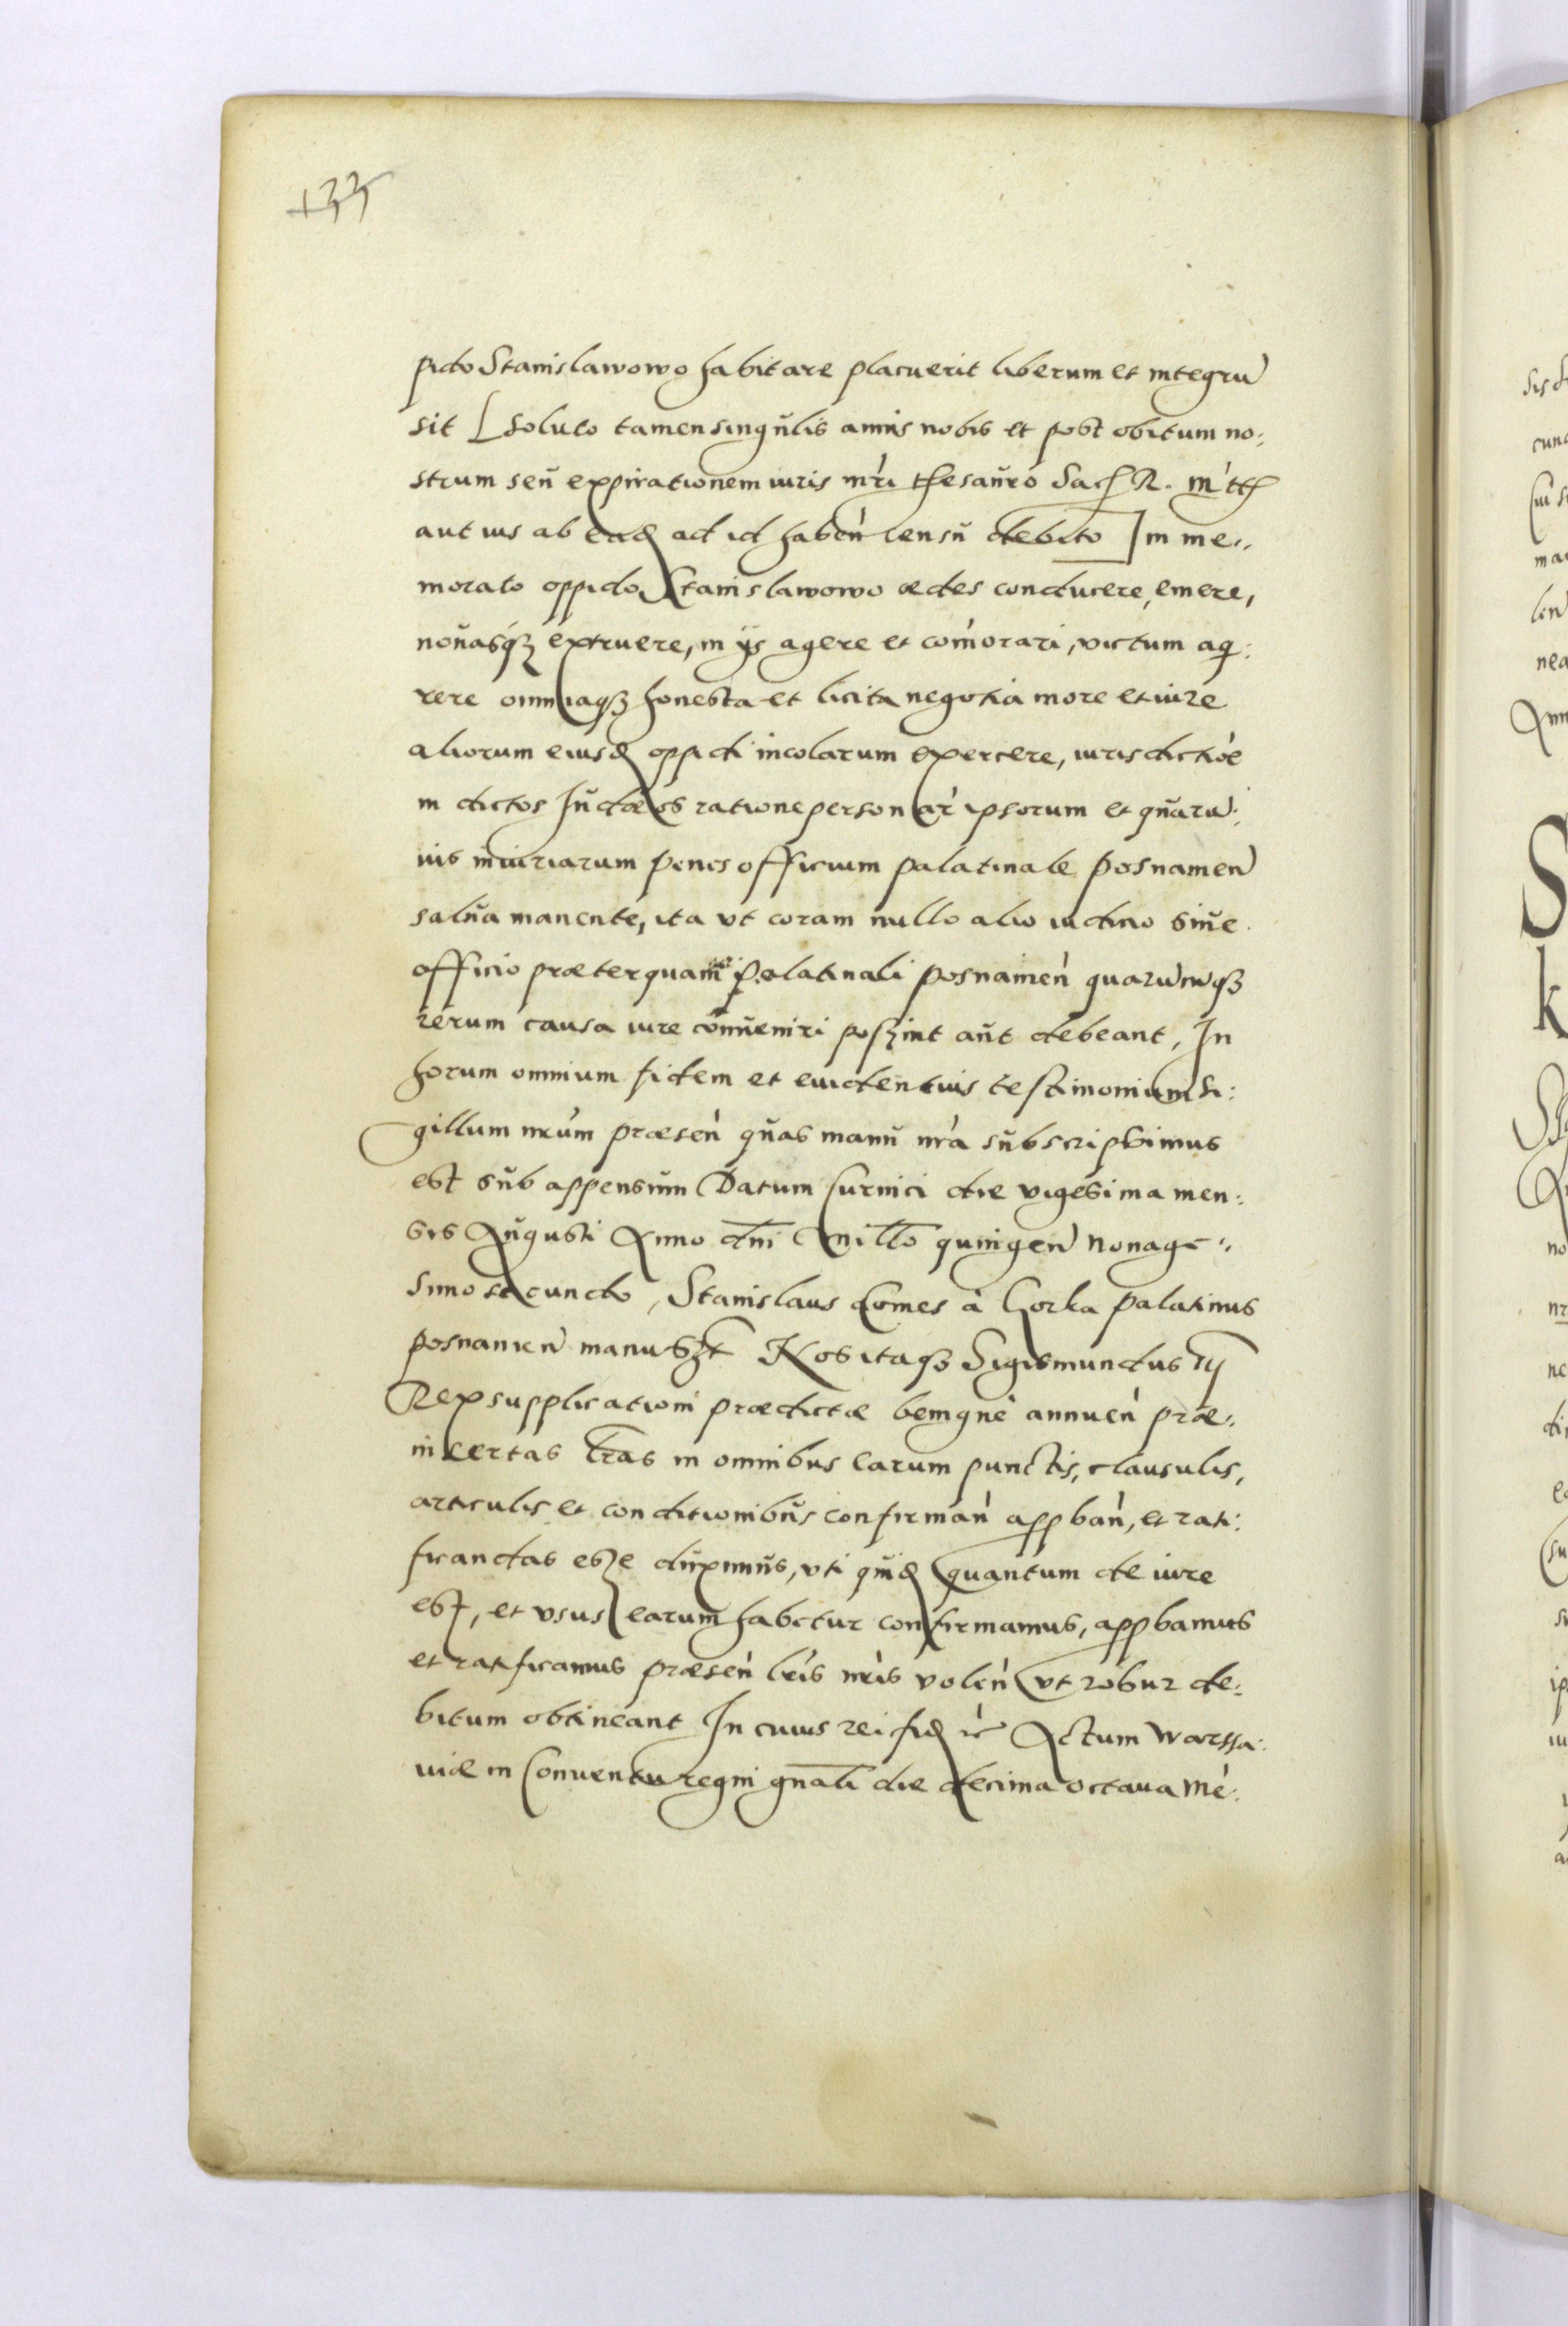 133
pido Stanislawowo habitare placuerit liberum et integrũ
sit [soluto tamen singulis annis nobis et post obitum no:
strum seu expirationem iuris nr̃i thesauro Sac R. Mttis
aut ius ab ead ad id haben̄ censu debito] In me:
morato oppido Stanislawowo ædes conducere, emere,
nouasq3 extruere, in ijs agere et com̃orari, victum aq:
rere omniaq3 honesta et licita negotia more et iure
aliorum eiusd oppidi incolarum exercere, iurisdictiõe
in dictos Iudæos ratione personar̃ ipsorum et quarũ:
uis iniuriarum penes officium palatinale posnamen̄
salua manente, ita vt coram nullo alio iudicio siue
officio præterquam palatinali posnanien̄ quarũcuq3
rerum causa iure conueniri possint aut debeant, In
horum omnium fidem et euidentius testimonium Si:
gillum nr̃um præsen̄ quas manu nr̃a subscripsimus
est sub appensum Datum Curnici die vigesima men:
sis Augusti Anno dni Millo quingen̄ Nonage:
simo secundo, Stanislaus Comes à Gorka palatinus
posnanien̄ manu sszt Nos itaq3 Sigismundus 3ij
Rex supplicationi prædictæ benignè annuen̄ præ:
insertas lr̃as in omnibus earum punctis, clausulis,
articulis et conditionibus confirman̄ appban̄, et rati:
ficandas esse duximus, vti quid quantum de iure
est, et vsus earum habetur confirmamus, appbamus
et ratificamus præsen̄ lr̃is nr̃is volen̄ vt robur de:
bitum obtineant In cuius rei fid rc Actum Warssa:
uiæ in Conuentu regni gnali die decima octaua Mẽ: